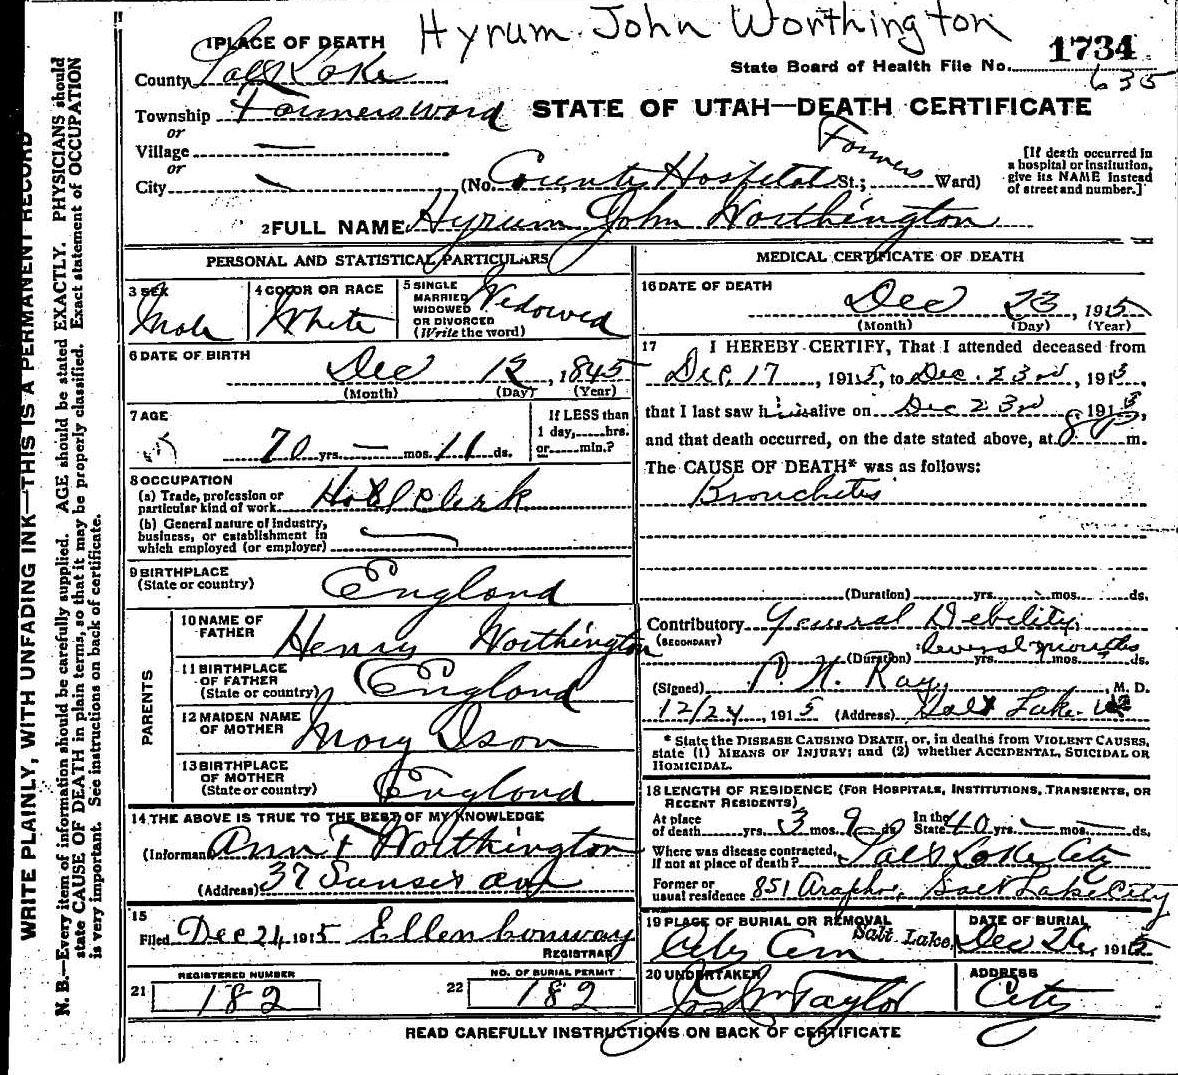 Hyrum John Worthington
1 PLACE OF DEATH
1734
State Board of Health File No.
635
County Salt Lake
Township Farmers Ward
STATE OF UTAH—DEATH CERTIFICATE
or
Village —
or
City
(No. County Hospital St.; Farmers Ward)
[If death occurred in a hospital or institution, give its NAME instead of street and number.]
2 FULL NAME Hyrum John Worthington
PERSONAL AND STATISTICAL PARTICULARS
3 SEX Male
4 COLOR OR RACE White
5 SINGLE MARRIED WIDOWED OR DIVORCED (Write the word) Widowed
6 DATE OF BIRTH
Dec 12, 1845
(Month) (Day) (Year)
7 AGE
70 yrs. — mos. 11 ds.
If LESS than 1 day, hrs. or min.?
8 OCCUPATION
(a) Trade, profession or particular kind of work Hotel Clerk
(b) General nature of industry, business, or establishment in which employed (or employer)
9 BIRTHPLACE (State or country) England
PARENTS
10 NAME OF FATHER Henry Worthington
11 BIRTHPLACE OF FATHER (State or country) England
12 MAIDEN NAME OF MOTHER Mary Ison
13 BIRTHPLACE OF MOTHER (State or country) England
14 THE ABOVE IS TRUE TO THE BEST OF MY KNOWLEDGE
(Informant Ann F Worthington
(Address) 37 Sunset ave
15
Filed Dec 24 1915 Ellen Conway
REGISTRAR
REGISTERED NUMBER
21 182
NO. OF BURIAL PERMIT
22 182
MEDICAL CERTIFICATE OF DEATH
16 DATE OF DEATH
Dec 23, 1915
(Month) (Day) (Year)
17 I HEREBY CERTIFY, That I attended deceased from
Dec. 17, 1915, to Dec. 23rd, 1915,
that I last saw him alive on Dec 23rd 1915,
and that death occurred, on the date stated above, at 8 P m.
The CAUSE OF DEATH* was as follows:
Bronchitis
(Duration) yrs. mos. ds.
Contributory (SECONDARY) General Debility,
(Duration) Several months yrs. mos. ds.
(Signed) P. H. Ray, M. D.
12/24, 1915 (Address) Salt Lake
* State the DISEASE CAUSING DEATH, or, in deaths from VIOLENT CAUSES, state (1) MEANS OF INJURY; and (2) whether ACCIDENTAL, SUICIDAL OR HOMICIDAL.
18 LENGTH OF RESIDENCE (FOR HOSPITALS, INSTITUTIONS, TRANSIENTS, OR RECENT RESIDENTS)
At place of death yrs. 3 mos. 9 ds. In the State 40 yrs. — mos. — ds.
Where was disease contracted, If not at place of death? Salt Lake City
Former or usual residence 851 Arapahoe, Salt Lake City
19 PLACE OF BURIAL OR REMOVAL City Cem Salt Lake,
DATE OF BURIAL Dec 26, 1915
20 UNDERTAKER Jos Wm Taylor
ADDRESS City
READ CAREFULLY INSTRUCTIONS ON BACK OF CERTIFICATE
WRITE PLAINLY, WITH UNFADING INK—THIS IS A PERMANENT RECORD
N. B.—Every item of information should be carefully supplied. AGE should be stated EXACTLY. PHYSICIANS should
state CAUSE OF DEATH in plain terms, so that it may be properly classified. Exact statement of OCCUPATION
is very important. See instructions on back of certificate.